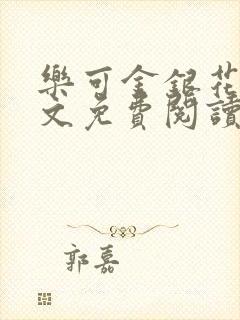 樂可金銀花
文免費閱讀
郭嘉